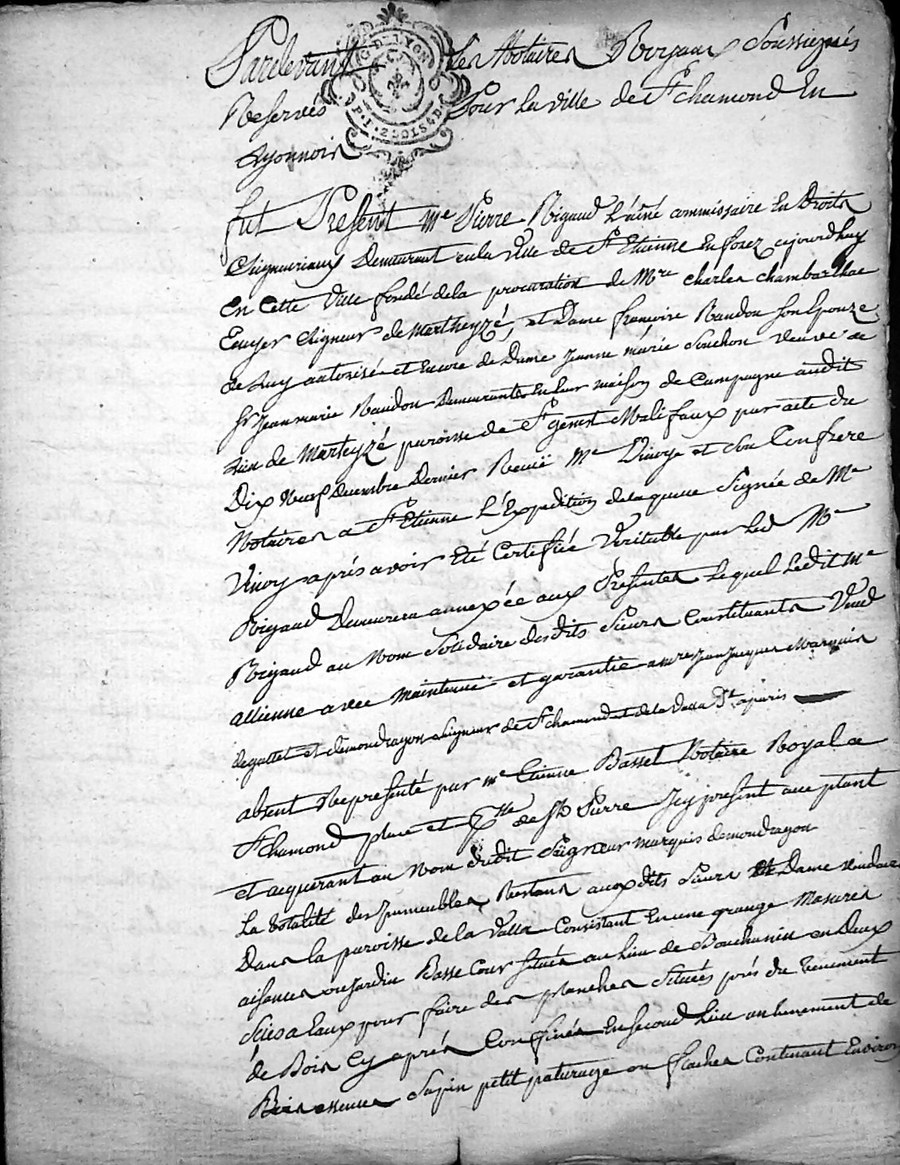 Pardevant Les Notaires Royaux Soussignés
Reservés Pour la ville de St chamond En
Lyonnois
G. DE LYON
P. I. 2 SOLS 4 D.
fut Présent Me Pierre Rigaud L'aîné commissaire En Droits
Seigneuriaux Demeurant en la Ville de St Etienne En forez aujourdhuy
En Cette Ville fondé de la procuration de Mre Charles chambarlhac
Ecuyer Seigneur de Martheyzé, et Dame francoise Raudon Son Epouze
de Luy autorisée et Encore de Dame Jeanne marie Souchon veuve de
Sr Jean marie Raudon Demeurants En Leur maison de Campagne audit
Lieu de Marteyzé paroisse de St genest Malifaux par acte du
Dix Neuf Decembre Dernier Receu Me Vinoy et Son Confrere
Notaires a St Etienne L'Expedition de laquelle Signée de Me
Vinoy après avoir Eté Certifiée Véritable par Led Me
Rigaud Demeurera annexée aux Presentes Lequel Ledit Me
Rigaud au Nom Solidaire desdits Sieurs Constituants Vend
allienne avec maintenüe et garantie a mre Jean Jacques Marquis
degallet et demondragon Seigneur de St chamond et de la Valla Dt a paris
absent Representé par me Etienne Basset Notaire Royal a
St Chamond place et psse de St Pierre Icy present acceptant
et acquerant au Nom dudit Seigneur marquis demondragon
La totalité des Jmmeubles Restans auxdits Sieurs et Dame
Dans la paroisse de la Valla Consistant En une grange Masures
aisances ou jardin Basse Cour Située au Lieu de en Deux
Scies a Eaux pour faire des planches Situées près du Tenement
de Bois Cy après Confinés En second Lieu un tenement de
Bois essence Sapin petit paturage ou flaches Contenant Environ